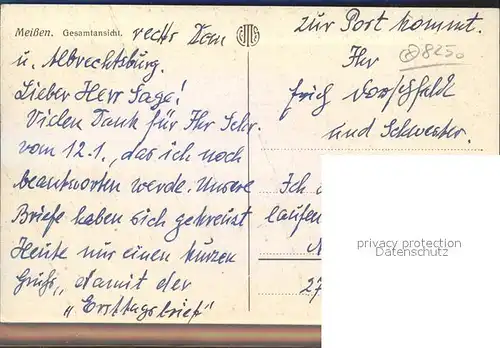 Meißen. Gesamtansicht. rechts Dom
u. Albrechtsburg.
Lieber Herr Sage!
Vielen Dank für Ihr Schr.
vom 12.1., das ich noch
beantworten werde. Unsere
Briefe haben sich gekreuzt
Heute nur einen kurzen
Gruß, damit der
„Ersttagsbrief"
zur Post kommt.
Ihr
8250
Erich
und Schwester.
Ich
laufen
27
privacy protection
Datenschutz